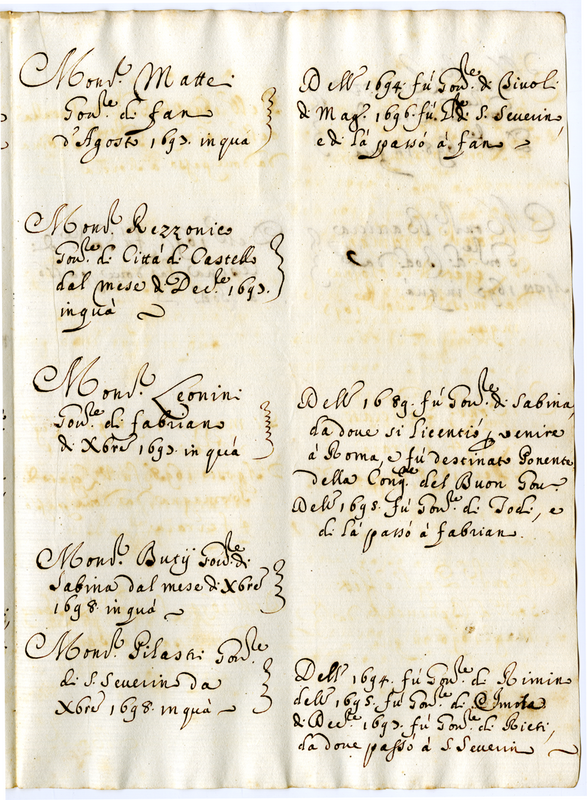 Mons.r Mattei
Gov.re di Fano
d'Agosto 1697. in quà
Dell' 1694. fù Gov.re di Tivoli
di Mag.o 1696. fù di S. Severino,
e di là passò à Fano
Mons.r Rezzonico
Gov.re di Città di Castello
dal mese di Dec.re 1697.
in quà
Mons.r Leonini
Gov.re di Fabriano
di Xbre 1697. in quà
Dell' 1689. fù Gov.re di Sabina,
da dove si licentiò p venire
à Roma, e fù destinato Ponente
della Cong.ne del Buon Gov.
Dell' 1695. fù Gov.re di Todi, e
di là passò à Fabriano.
Mons.r Bucij Gov.re di
Sabina dal mese di Xbre
1698. in quà
Mons.r Pilastri Gov.re
di S. Severino da
Xbre 1698. in quà
Dell' 1694. fù Gov.re di Rimino
dell' 1695. fù Gov.re di Imola
di Dec.re 1697. fù Gov.re di Rieti,
da dove passò à S. Severino